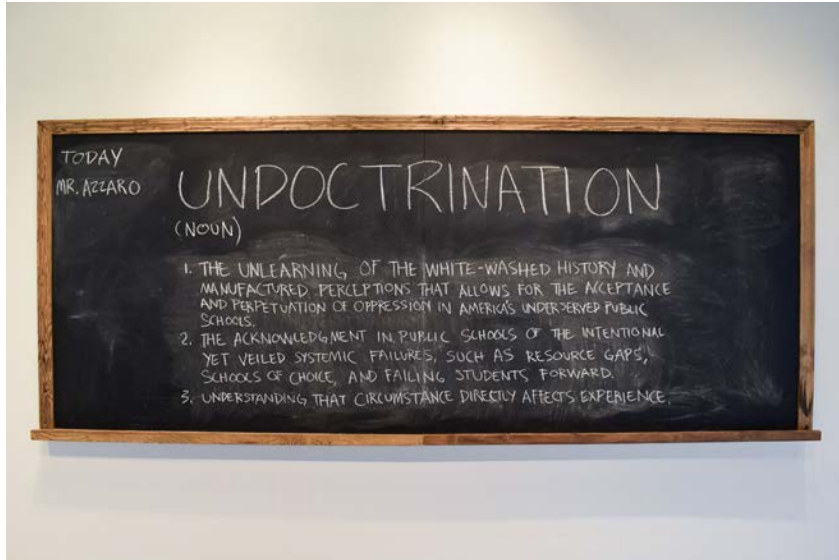 TODAY
MR. AZZARO
UNDOCTRINATION
(NOUN)
1. THE UNLEARNING OF THE WHITE-WASHED HISTORY AND
MANUFACTURED PERCEPTIONS THAT ALLOWS FOR THE ACCEPTANCE
AND PERPETUATION OF OPPRESSION IN AMERICA'S UNDERSERVED PUBLIC
SCHOOLS.
2. THE ACKNOWLEDGMENT IN PUBLIC SCHOOLS OF THE INTENTIONAL
YET VEILED SYSTEMIC FAILURES, SUCH AS RESOURCE GAPS,
SCHOOLS OF CHOICE, AND FAILING STUDENTS FORWARD.
3. UNDERSTANDING THAT CIRCUMSTANCE DIRECTLY AFFECTS EXPERIENCE.